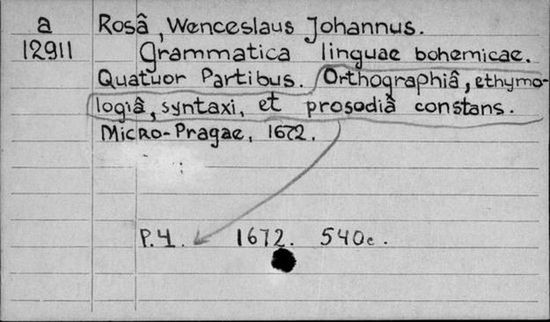 a Rosâ, Wenceslaus Johannus.
12911 Grammatica linguae bohemicae.
Quatuor Partibus. Orthographiâ, ethymo-
logiâ, syntaxi, et prosodiâ constans.
Micro-Pragae, 1672.
P.4. 1672. 540c.